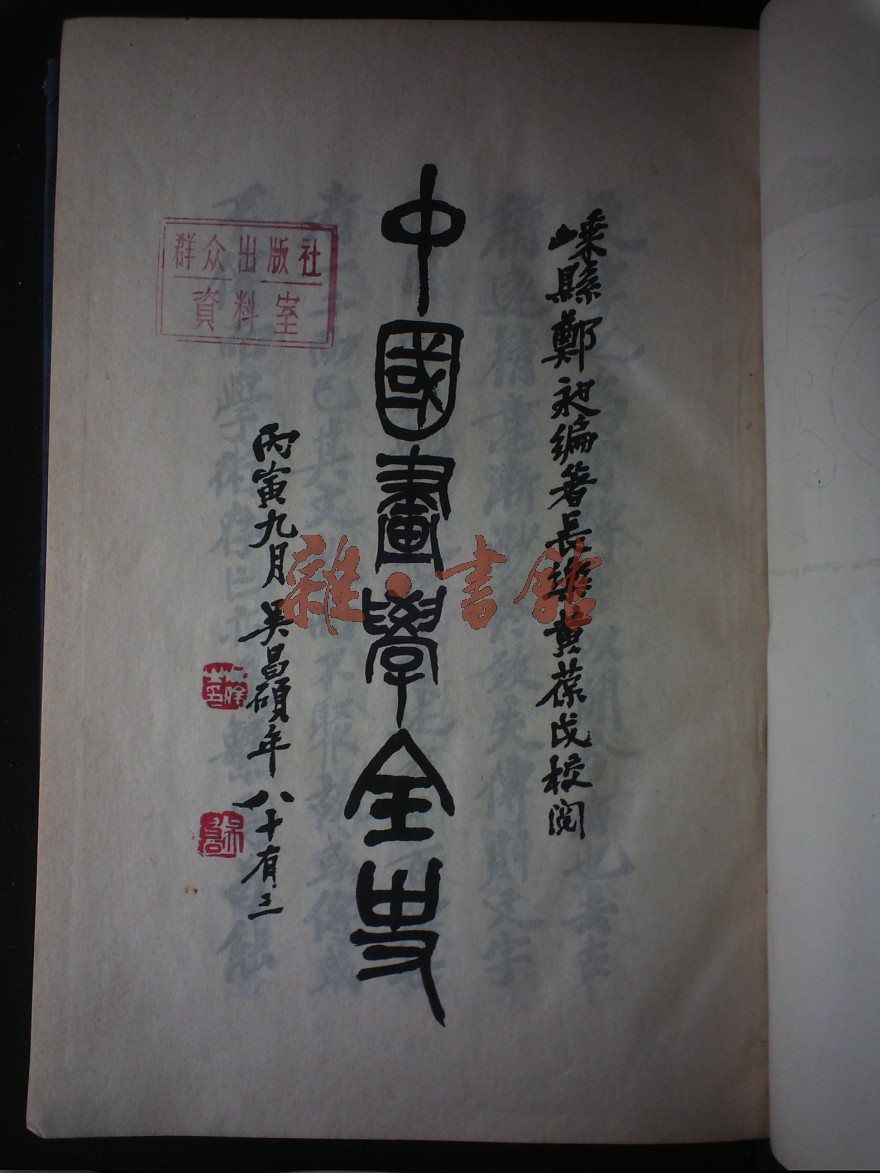 嵊縣鄭昶編著長樂黄葆戉校閲
中國畫學全史
丙寅九月吴昌碩年八十有三
群众出版社
資料室
雜·書館